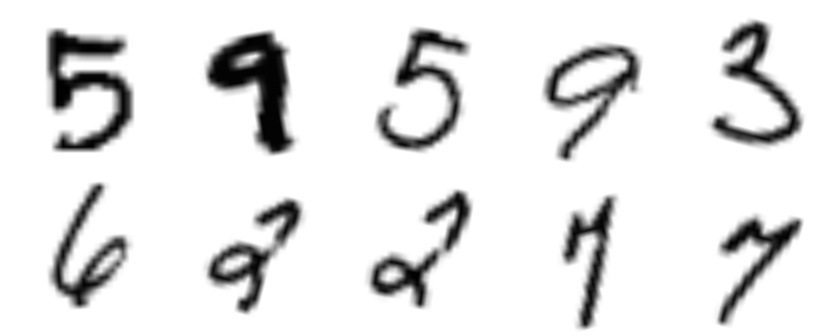 5 9 5 9 3
6 2 2 7 7